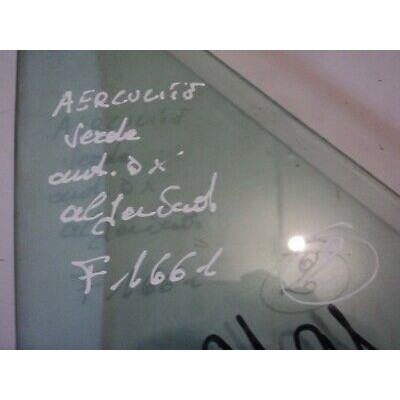 AERCULITE
verde
ant. DX
alfasud
F1661